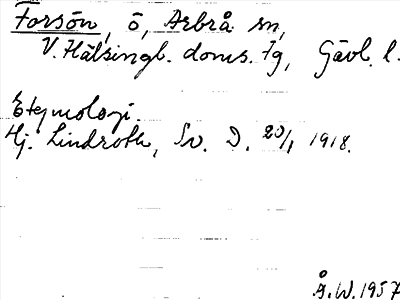 Forsön, ö, Arbrå sn,
V. Hälsingl. doms. Fg, Gävl. l.
Etymologi.
Hj. Lindroth, Sv. D. 20/1 1918.
Å.W. 1957